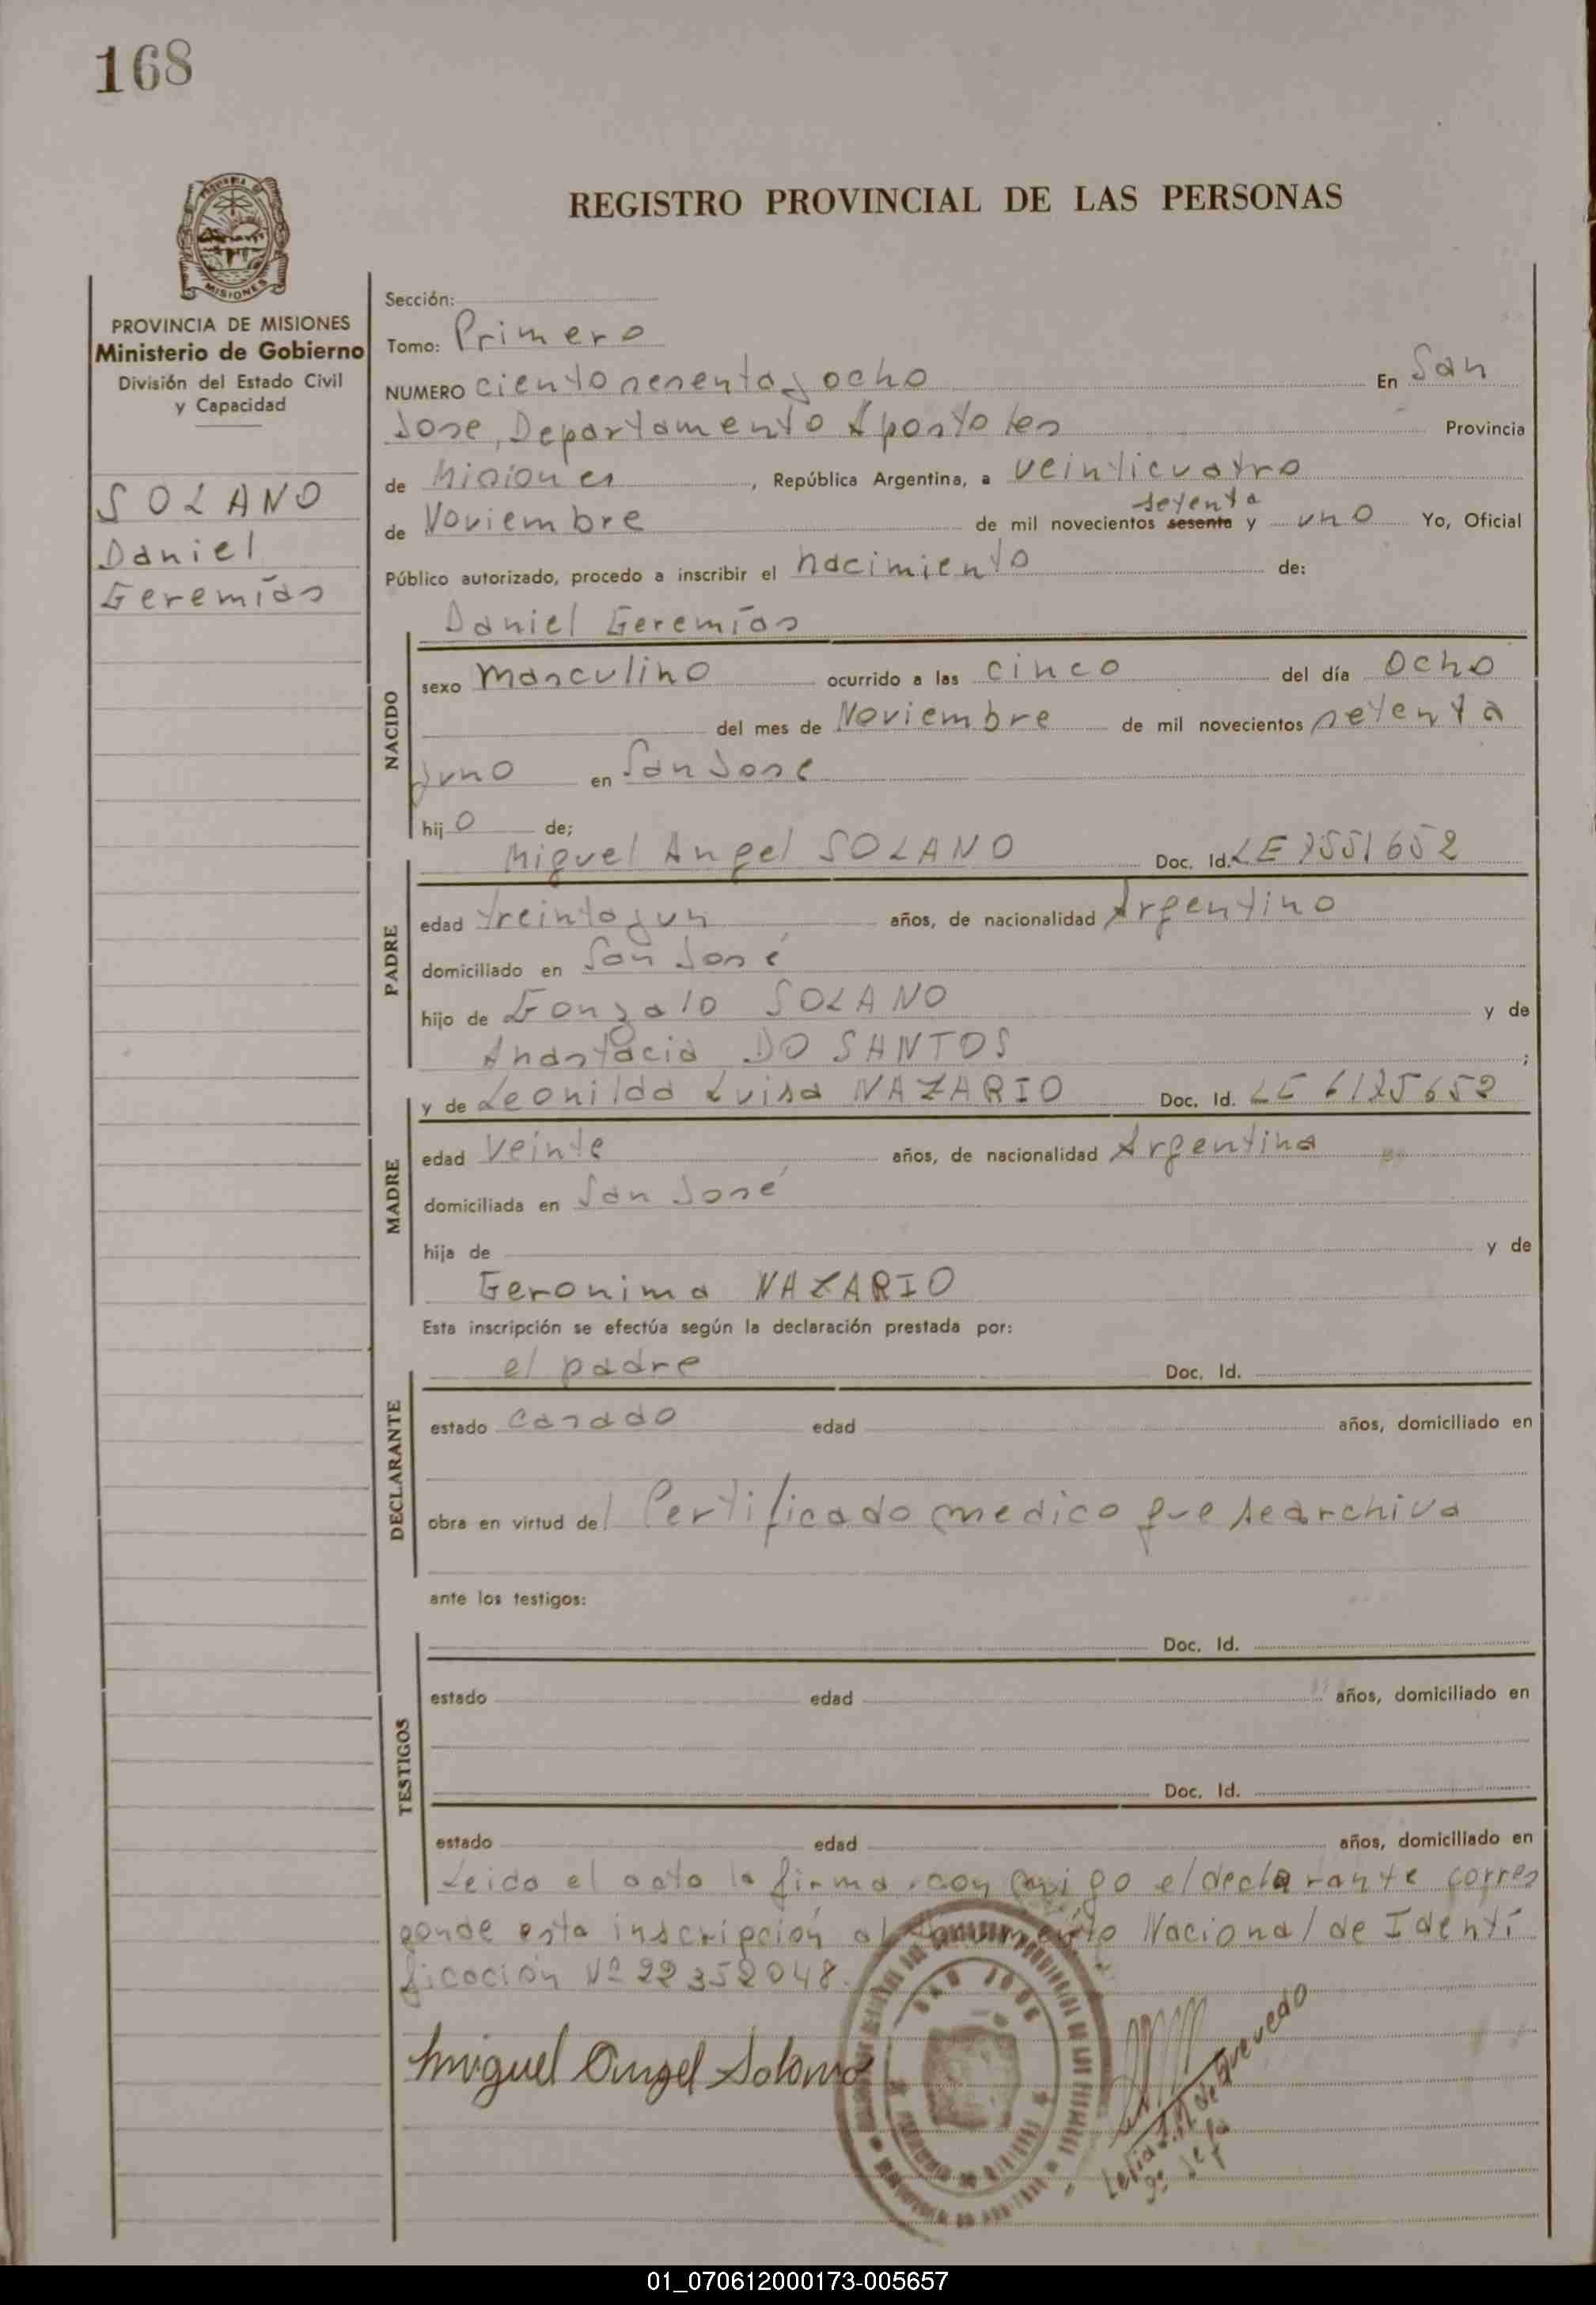 168
REGISTRO PROVINCIAL DE LAS PERSONAS
MISIONES
PROVINCIA DE MISIONES
Ministerio de Gobierno
División del Estado Civil
y Capacidad
SOLANO
Daniel
Geremías
Sección:
Tomo: Primero
NUMERO ciento sesenta y ocho En San
Jose, Departamento Apostoles Provincia
de Misiones, República Argentina, a veinticuatro
setenta
de Noviembre de mil novecientos sesenta y uno Yo, Oficial
Público autorizado, procedo a inscribir el nacimiento de:
Daniel Geremías
NACIDO
sexo masculino ocurrido a las cinco del día ocho
del mes de Noviembre de mil novecientos setenta
y uno en San José
hijo de;
Miguel Angel SOLANO Doc. Id. LE 7551652
PADRE
edad treinta y un años, de nacionalidad Argentino
domiciliado en San José
hijo de Gonzalo SOLANO y de
Anastacia DO SANTOS ;
y de Leonilda Luisa NAZARIO Doc. Id. LC 6125652
MADRE
edad veinte años, de nacionalidad Argentina
domiciliada en San José
hija de y de
Geronima NAZARIO
Esta inscripción se efectúa según la declaración prestada por:
el padre Doc. Id.
DECLARANTE
estado casado edad años, domiciliado en
obra en virtud del Certificado medico que se archiva
ante los testigos:
Doc. Id.
TESTIGOS
estado edad años, domiciliado en
Doc. Id.
estado edad años, domiciliado en
Leida el acta la firma conmigo el declarante corres
ponde esta inscripción al Documento Nacional de Identi
ficación Nº 22352048.
Miguel Angel Solano
SAN JOSE
de Quevedo
01_070612000173-005657